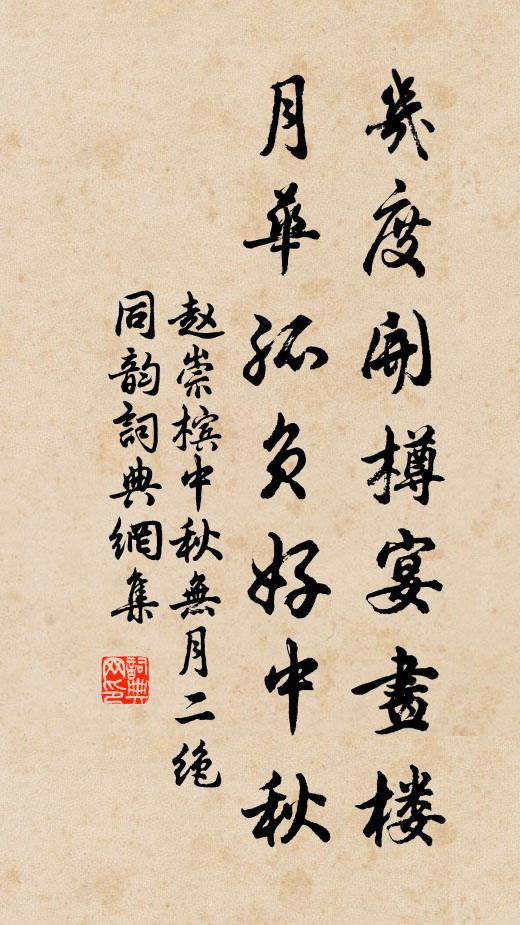 幾度開樽宴畫楼
月華孤負好中秋
赵崇槟中秋無月二绝
同韵詞典網集
詞典网印